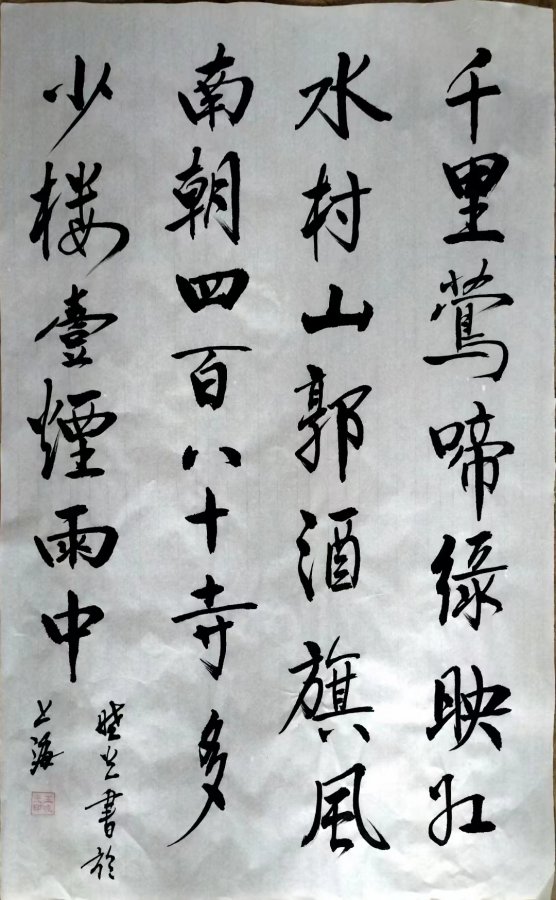 千里莺啼绿映红
水村山郭酒旗风
南朝四百八十寺多
少楼臺煙雨中
书於
上海